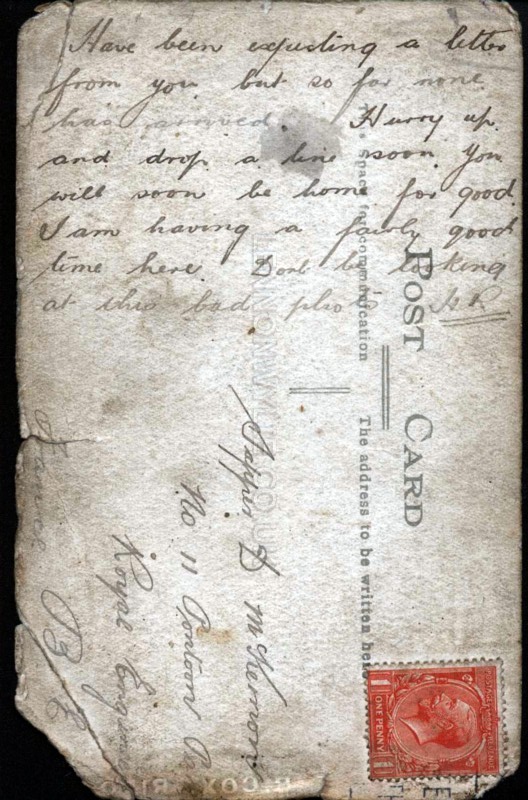 Have been expecting a letter
from you but so far none
has arrived. Hurry up
and drop a line soon. You
will soon be home for good.
I am having a fairly good
time here. Dont be looking
at this bad photo
POST CARD
Space for communication
The address to be written here
Sapper D McKernon
No 11 Pontoon
Royal
B E
ONE PENNY